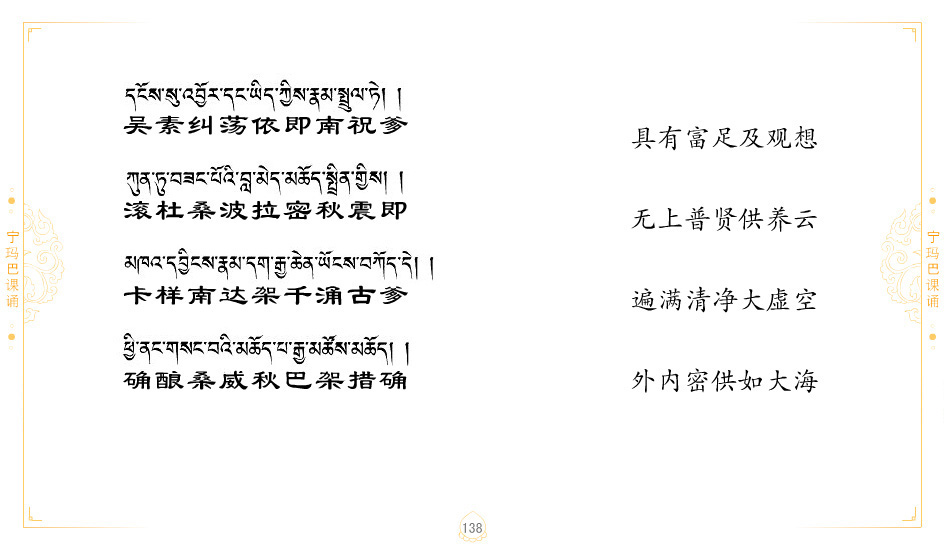 དངོས་སུ་འབྱོར་དང་ཡིད་ཀྱིས་རྣམ་སྤྲུལ་ཏེ། །
吴素纠荡依即南祝爹
具有富足及观想
ཀུན་ཏུ་བཟང་པོའི་བླ་མེད་མཆོད་སྤྲིན་གྱིས། །
滚杜桑波拉密秋震即
无上普贤供养云
མཁའ་དབྱིངས་རྣམ་དག་རྒྱ་ཆེན་ཡོངས་བཀོད་དེ། །
卡样南达架千涌古爹
遍满清净大虚空
ཕྱི་ནང་གསང་བའི་མཆོད་པ་རྒྱ་མཚོས་མཆོད། །
确酿桑威秋巴架措确
外内密供如大海
宁玛巴课诵
宁玛巴课诵
138